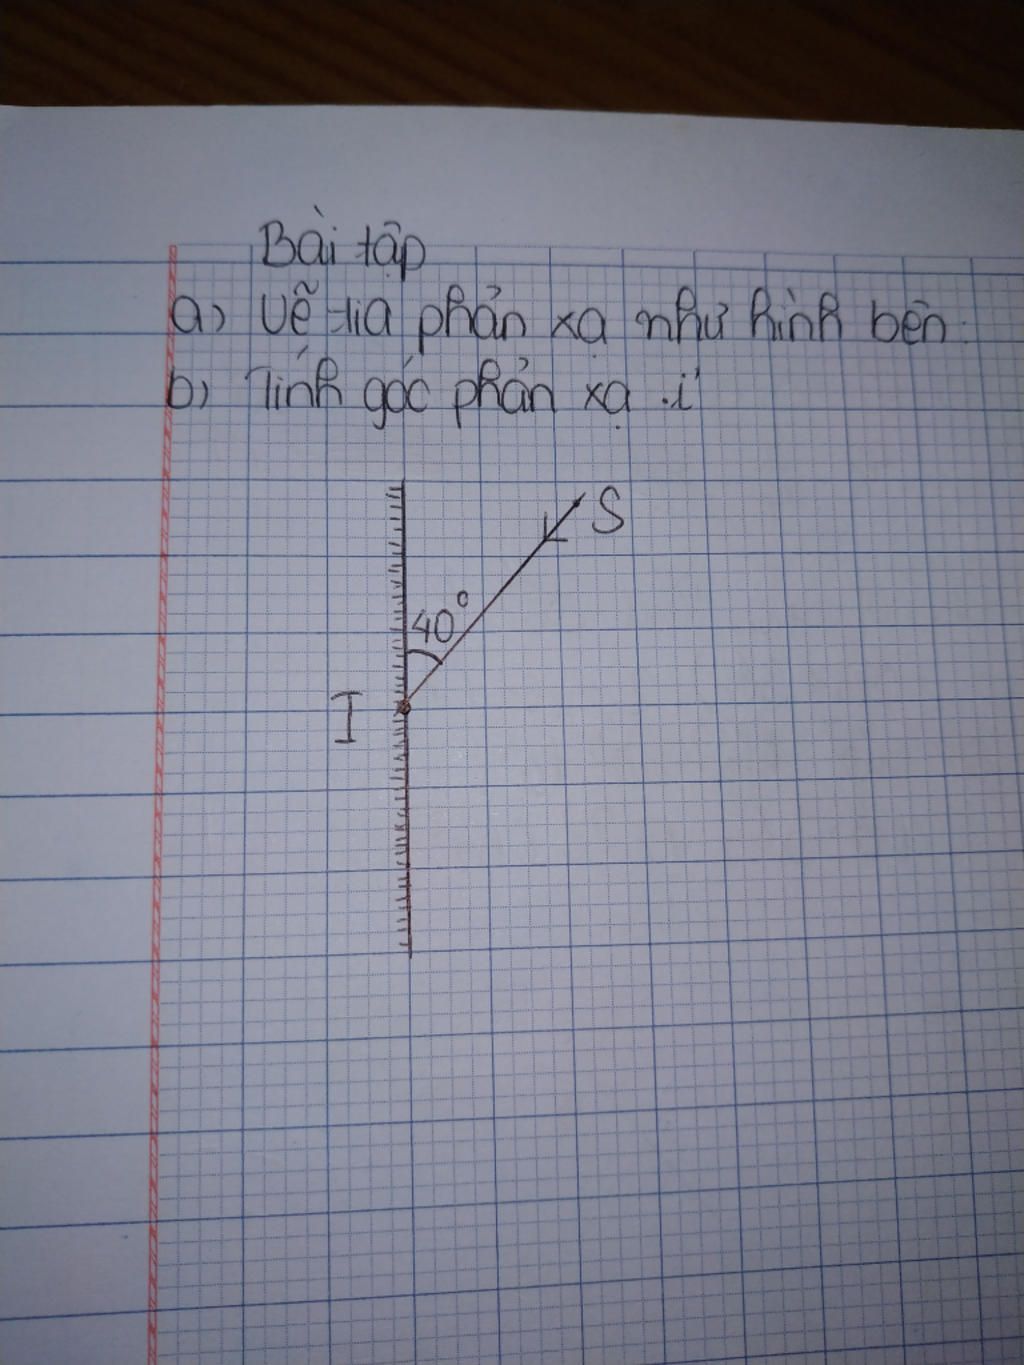 Bài tập
a) Vẽ tia phản xạ như hình bên.
b) Tính góc phản xạ i'
S
40°
I